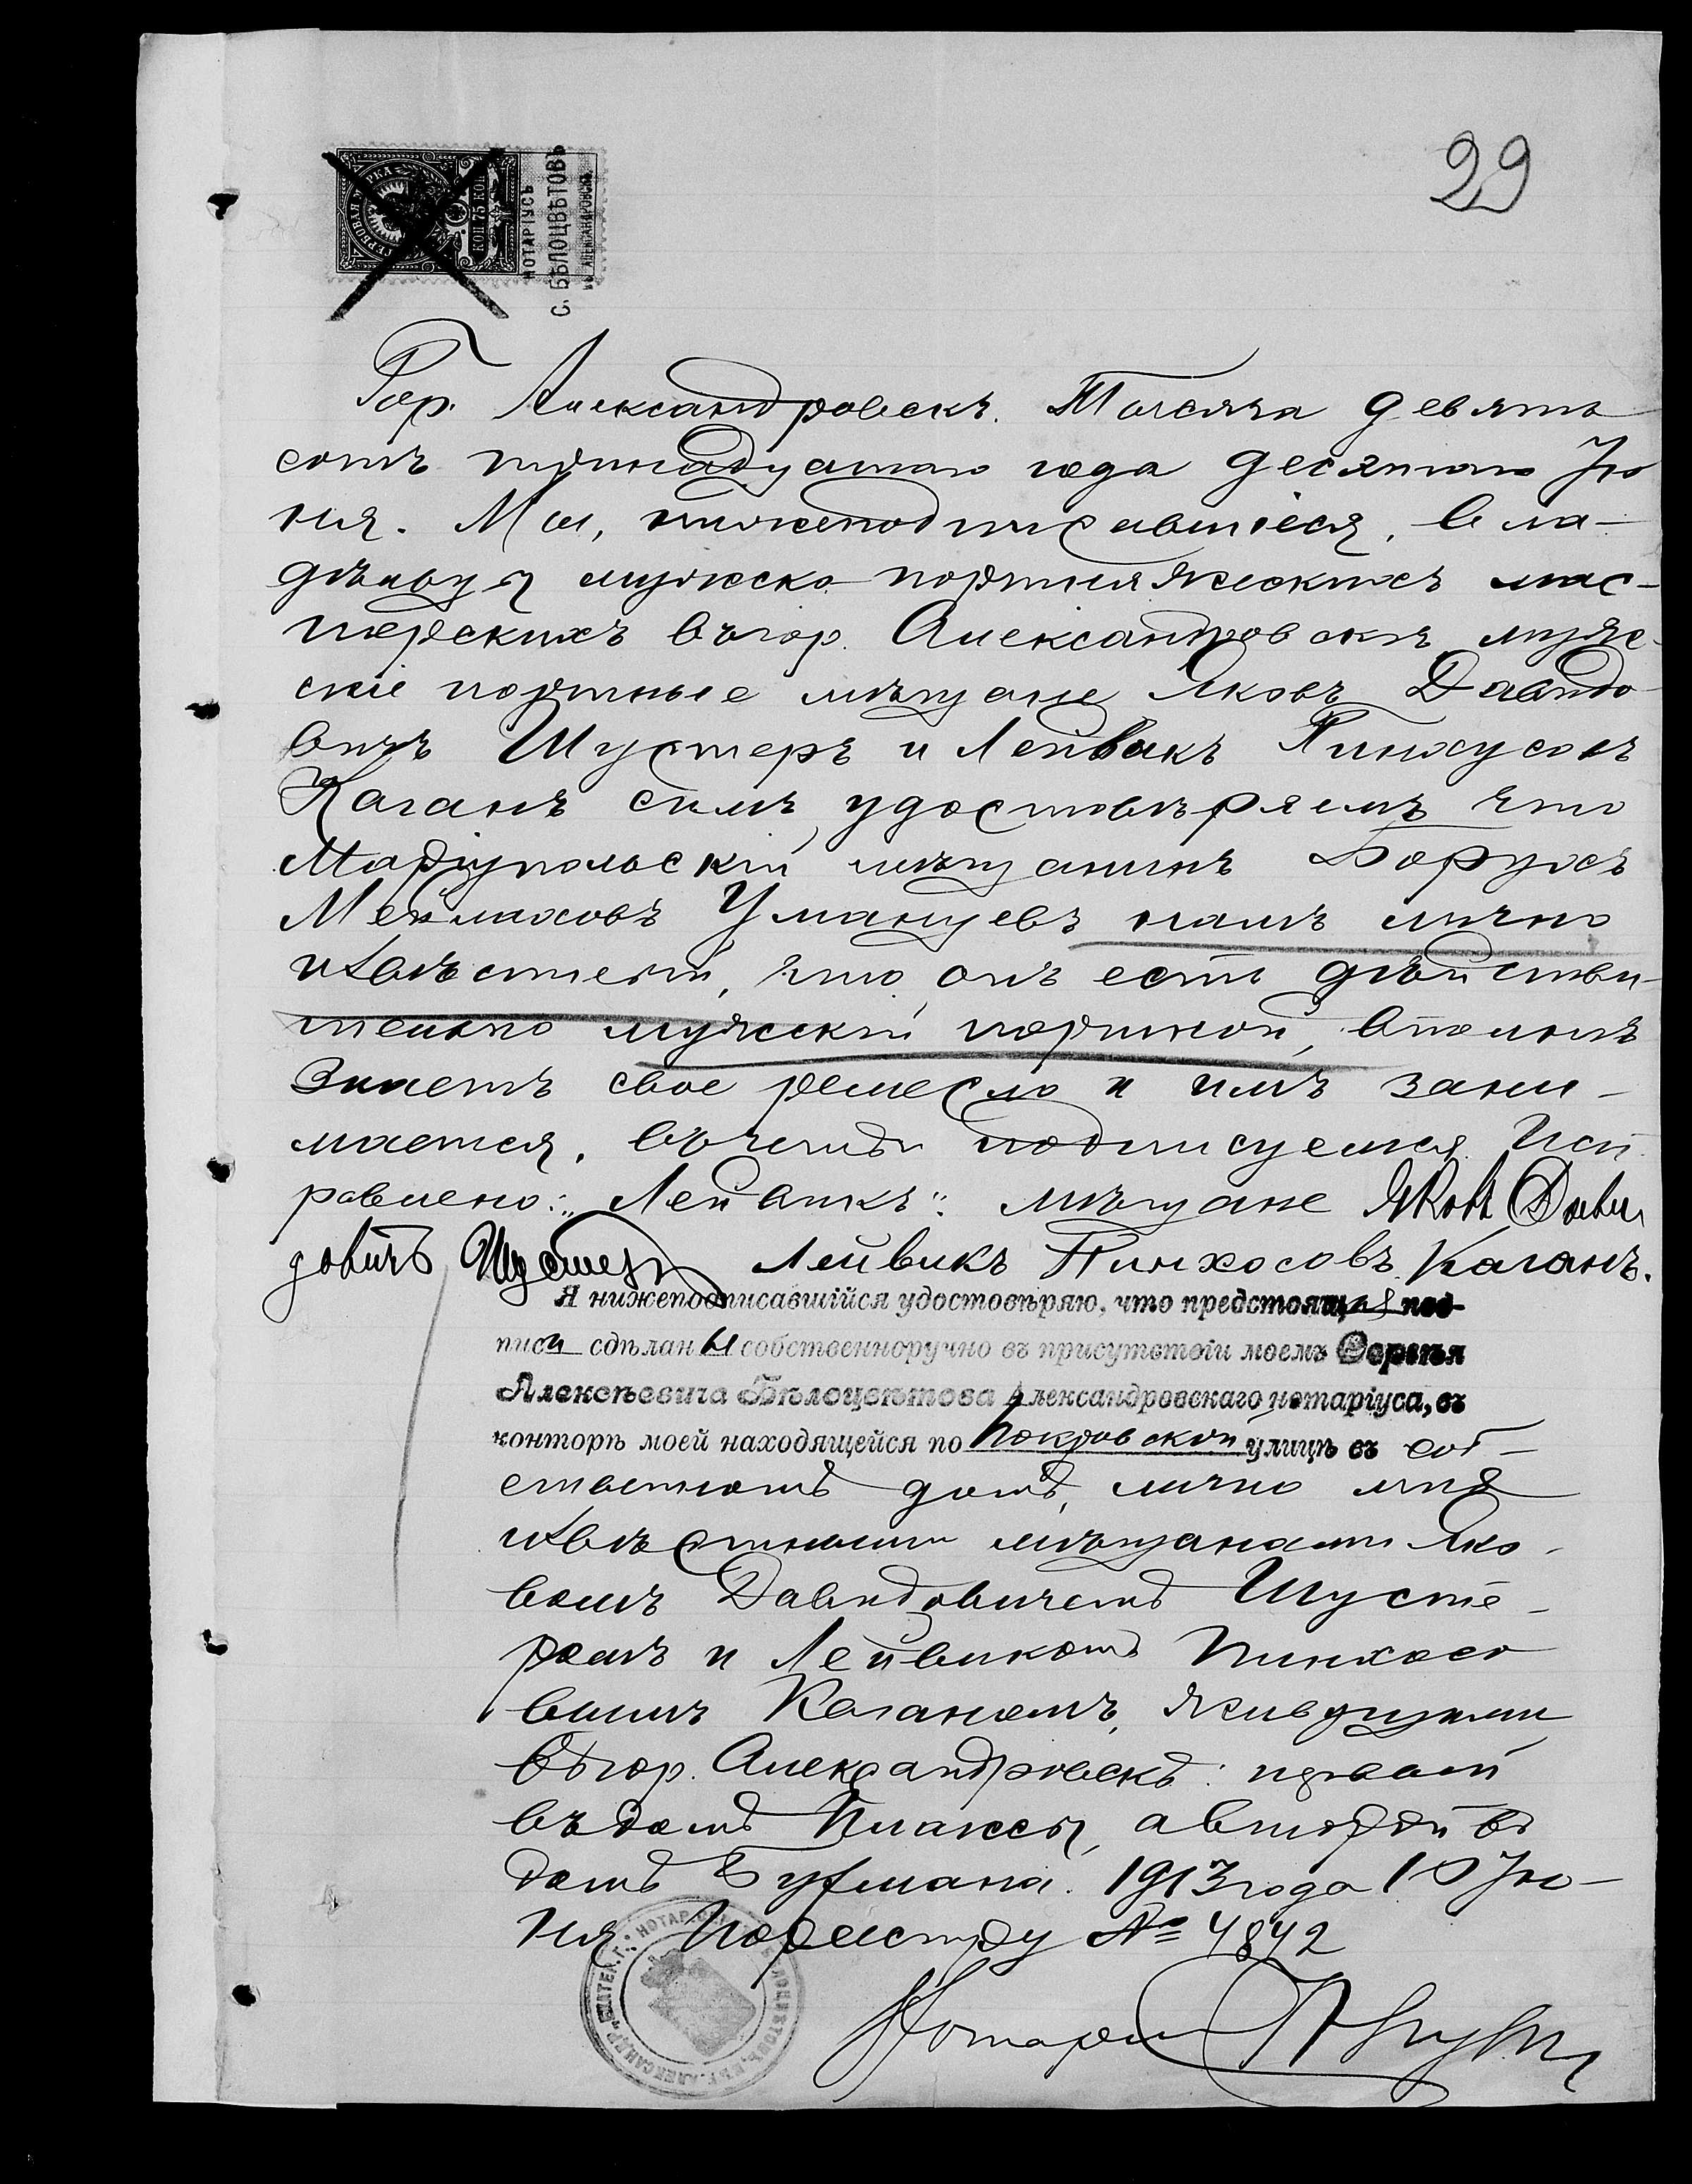 29
ГЕРБОВАЯ МАРКА
75 КОП
НОТАРІУСЪ
С. БѢЛОЦВѢТОВЪ
въ АЛЕКСАНДРОВСКѢ
Гор. Александровскъ. Тысяча девять
сотъ тринадцатаго года десятаго Iю
ня. Мы, нижеподписавшіеся, вла-
дѣльцы мужско портняжескихъ мас-
терскихъ въ гор. Александровскѣ, муж-
скіе портные мѣщане Яковъ Давидо-
вичъ Шустеръ и Лейвикъ Пинхусовъ
Каганъ симъ удостовѣряемъ что
Маріупольскій мѣщанинъ Борухъ
Мейлаховъ Уманцевъ намъ лично
извѣстенъ, что онъ есть дѣйстви-
тельно мужской портной, вполнѣ
знаетъ свое ремесло и имъ зани-
мается, въ чемъ и подписуемся. Исп
равлено: „Лейвикъ": мѣщане Яковъ Дави
довичъ Шустеръ Лейвикъ Пинхосовъ Каганъ.
Я нижеподписавшійся удостовѣряю, что предстоящія под-
писи сдѣланы собственноручно въ присутствіи моемъ Сергѣя
Алексѣевича Бѣлоцвѣтова Александровскаго нотаріуса, въ
конторѣ моей находящейся по Покровской улицѣ въ соб-
ственномъ домѣ, лично мнѣ
извѣстными мѣщанами Яко-
вомъ Давидовичемъ Шусте-
ромъ и Лейвикомъ Пинхосо
вымъ Каганомъ, живущими
въ гор. Александровскѣ: первый
въ домѣ Плаксы, а второй въ
домѣ Гуфмана. 1913 года 10 Iю-
ня. По реестру № 4842
Нотаріусъ